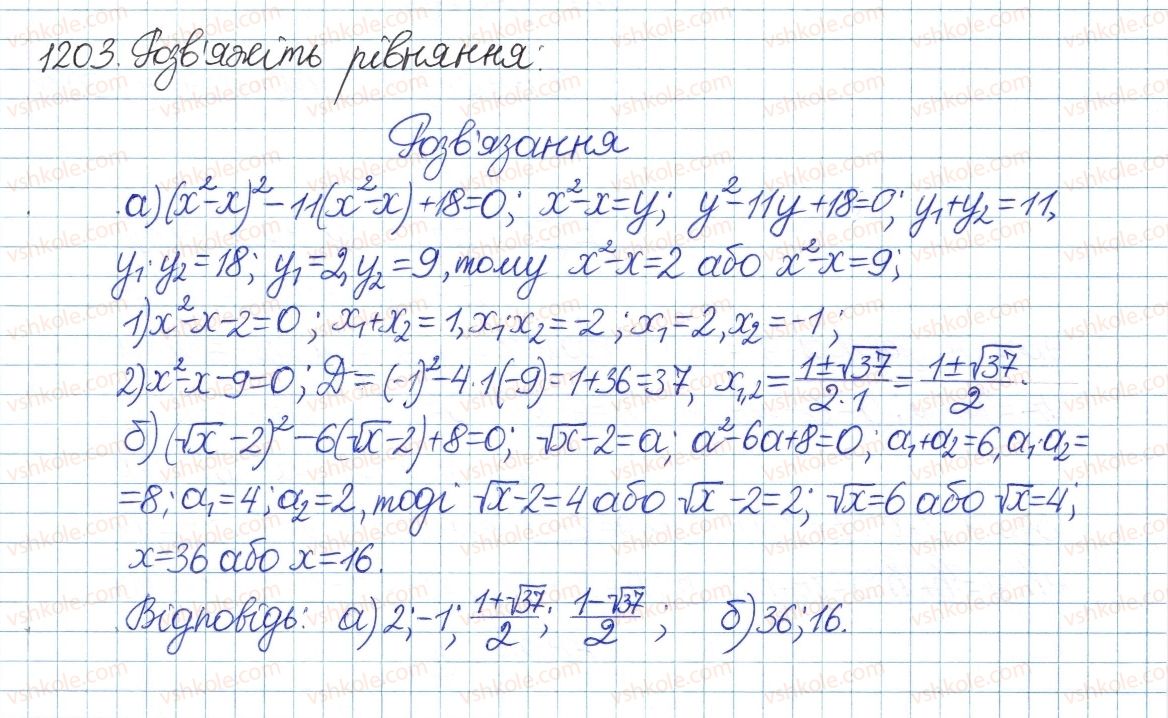 1203. Розв'яжіть рівняння:
Розв'язання
а) (x²-x)²-11(x²-x)+18=0; x²-x=y; y²-11y+18=0; y₁+y₂=11,
y₁·y₂=18; y₁=2, y₂=9, тому x²-x=2 або x²-x=9;
1) x²-x-2=0; x₁+x₂=1, x₁·x₂=-2; x₁=2, x₂=-1;
2) x²-x-9=0; D=(-1)²-4·1(-9)=1+36=37, x₁,₂=(1±√37)/(2·1)=(1±√37)/2.
б) (√x-2)²-6(√x-2)+8=0; √x-2=a; a²-6a+8=0; a₁+a₂=6, a₁·a₂=
=8; a₁=4; a₂=2, тоді √x-2=4 або √x-2=2; √x=6 або √x=4;
x=36 або x=16.
Відповідь: а) 2; -1; (1+√37)/2; (1-√37)/2; б) 36; 16.